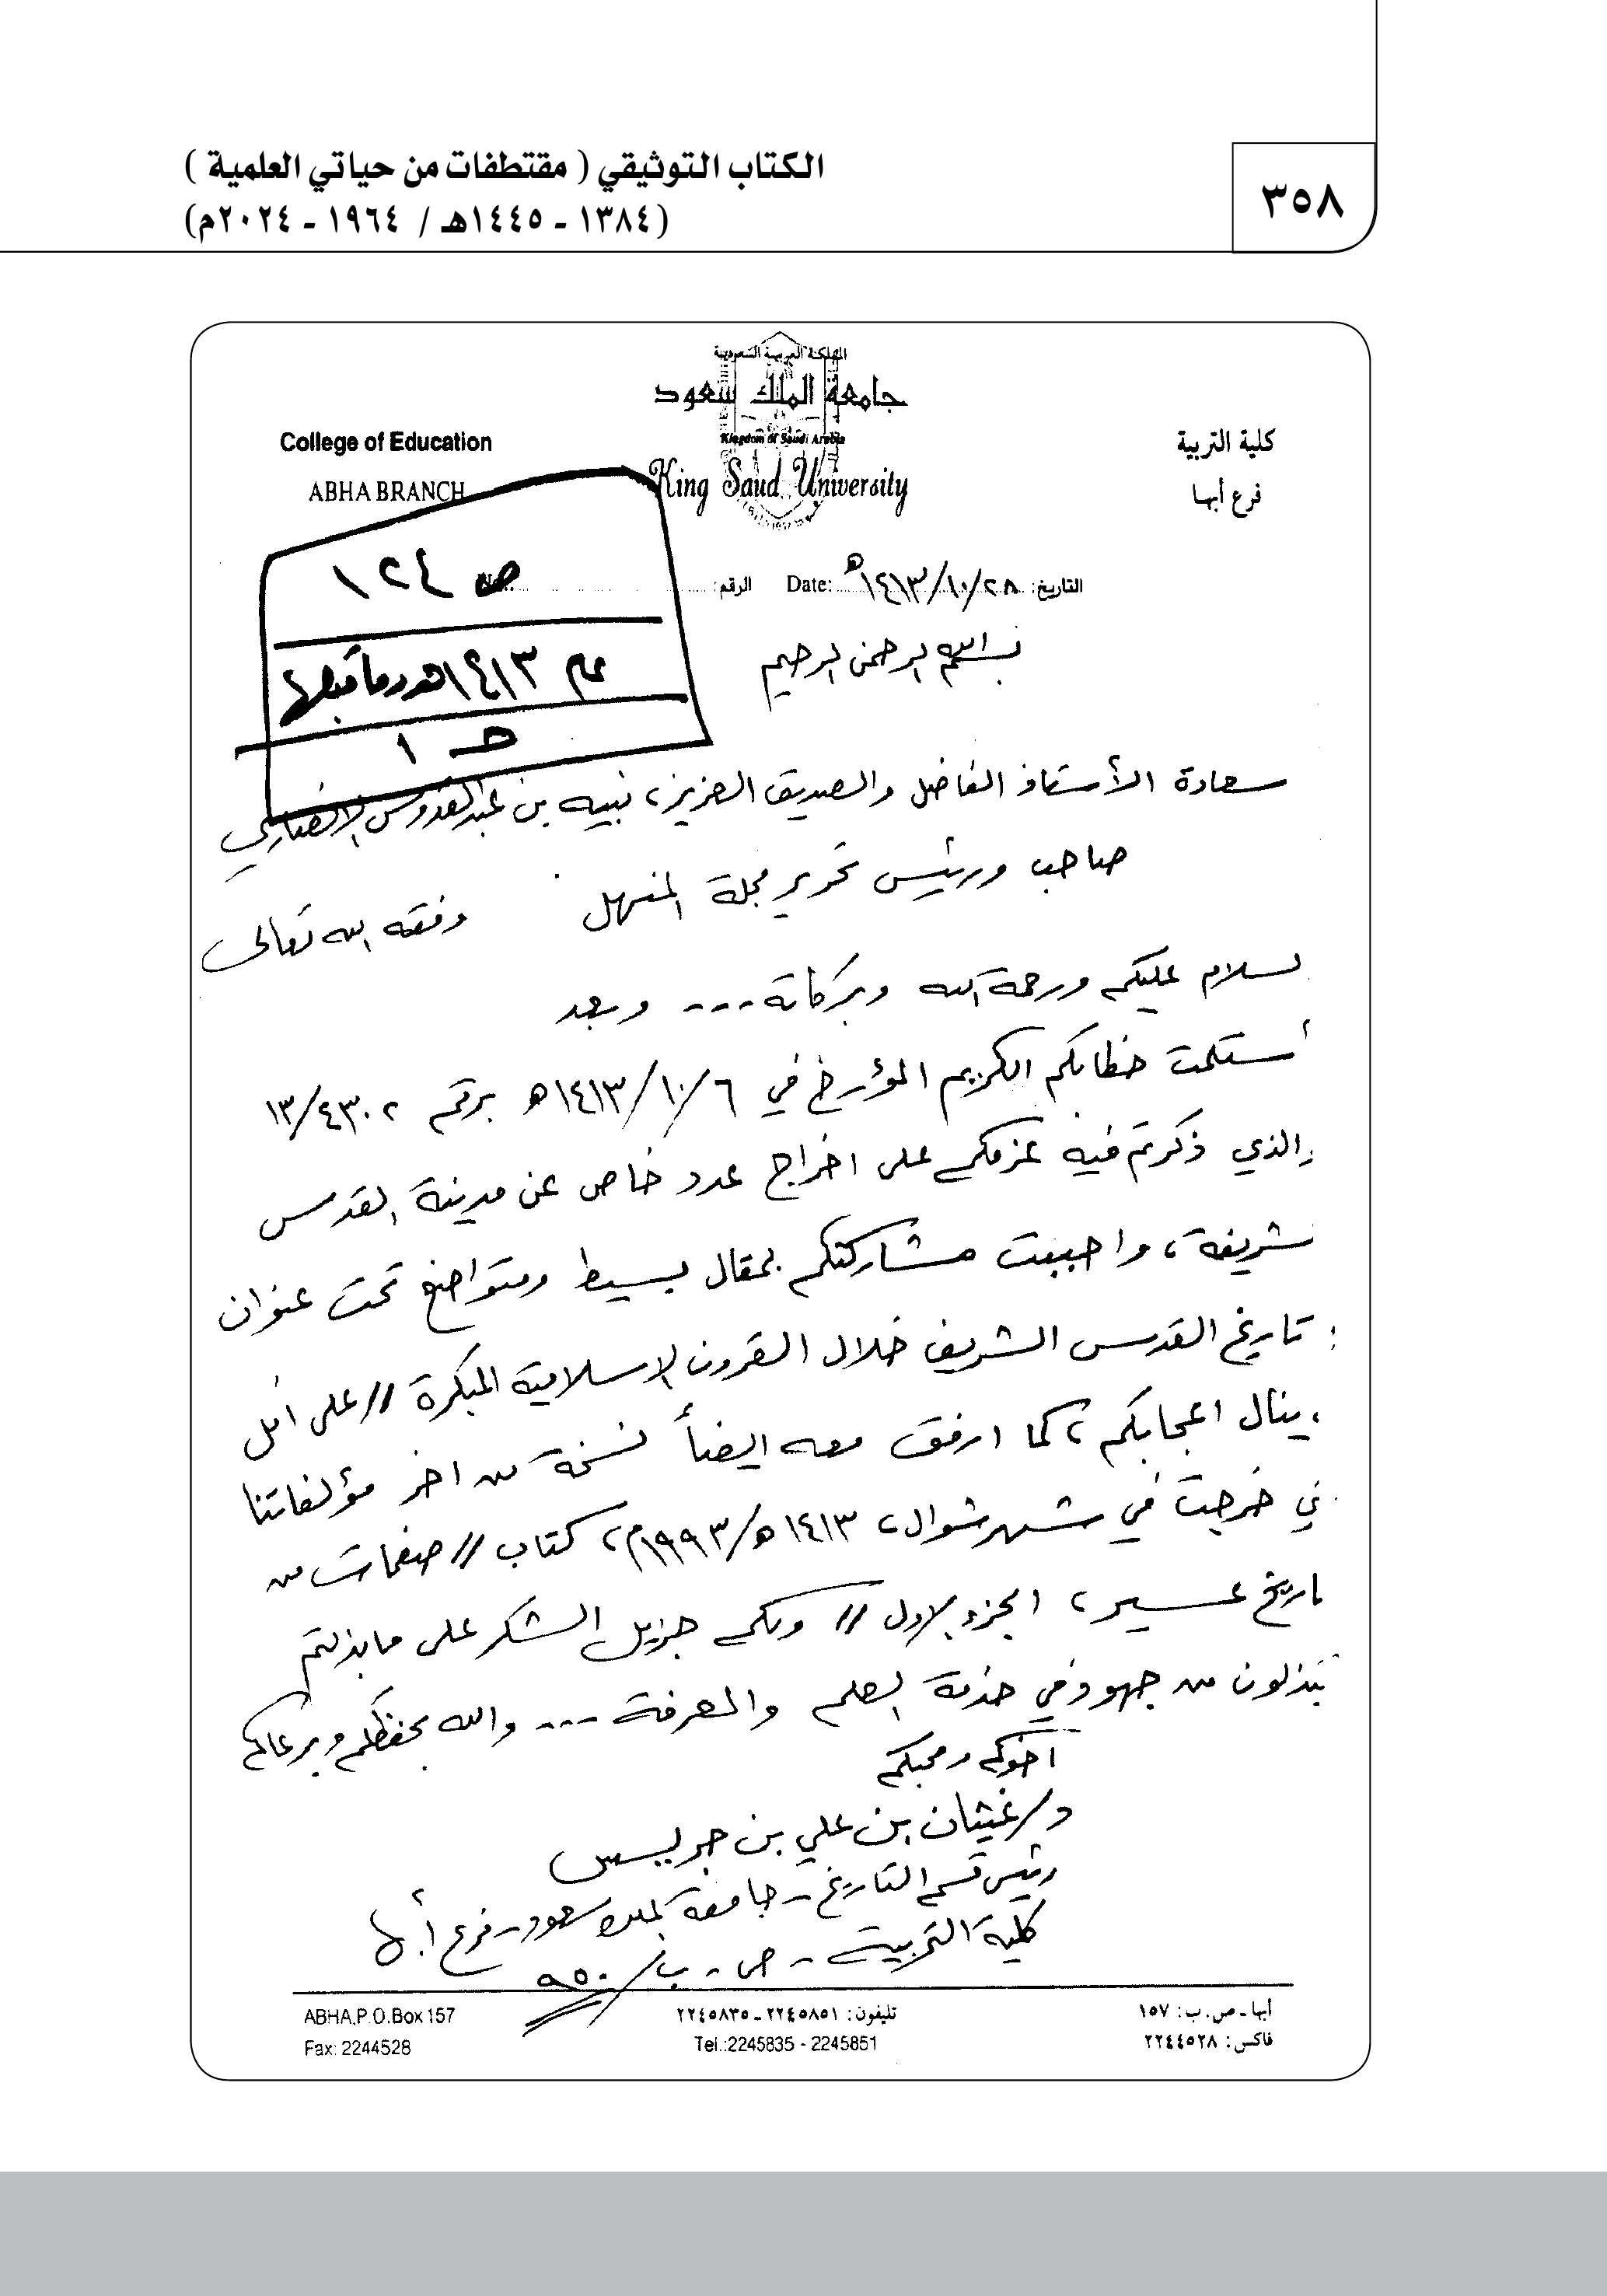 ٣٥٨
الكتاب التوثيقي ( مقتطفات من حياتي العلمية )
(١٣٨٤ - ١٤٤٥هـ / ١٩٦٤ - ٢٠٢٤م)
المملكة العربية السعودية
جامعة الملك سعود
Kingdom of Saudi Arabia
King Saud University
كلية التربية
فرع أبها
College of Education
ABHA BRANCH
التاريخ: ١٤١٣/١٠/٢٨هـ Date:
الرقم:
ص ١٢٤
عام ١٤١٣هـ وما قبلها
حـ ١
بسم الله الرحمن الرحيم
سعادة الأستاذ الفاضل والصديق العزيز، نبيه بن عبدالقدوس الأنصاري
صاحب ورئيس تحرير مجلة المنهل وفقه الله تعالى
لسلام عليكم ورحمة الله وبركاته --- وبعد
أستلمت خطابكم الكريم المؤرخ في ١٤١٣/١٠/٦هـ برقم ١٣/٤٣٠٢
والذي ذكرتم فيه عزمكم على اخراج عدد خاص عن مدينة القدس
شريفة، واحببت مشاركتكم بمقال بسيط ومتواضع تحت عنوان
تاريخ القدس الشريف خلال القرون الإسلامية المبكرة // على أمل
ينال اعجابكم، كما ارفق معه ايضاً نسخة من اخر مؤلفاتنا
تي خرجت في شهر شوال، ١٤١٣هـ/١٩٩٣م، كتاب // صفحات من
اريخ عسير، الجزء الأول // ولكم جزيل الشكر على مابذلتم
تبذلون من جهود في خدمة العلم والمعرفة --- والله يحفظكم ويرعاكم
أخوكم ومحبكم
د/ غيثان بن علي بن جريس
رئيس قسم التاريخ - جامعة الملك سعود - فرع أبها
كلية التربية - ص - ب / ٩٥٠
أبها - ص. ب: ١٥٧
فاكس: ٢٢٤٤٥٢٨
تليفون: ٢٢٤٥٨٥١ - ٢٢٤٥٨٣٥
Tel.:2245835 - 2245851
ABHA,P.O.Box 157
Fax: 2244528